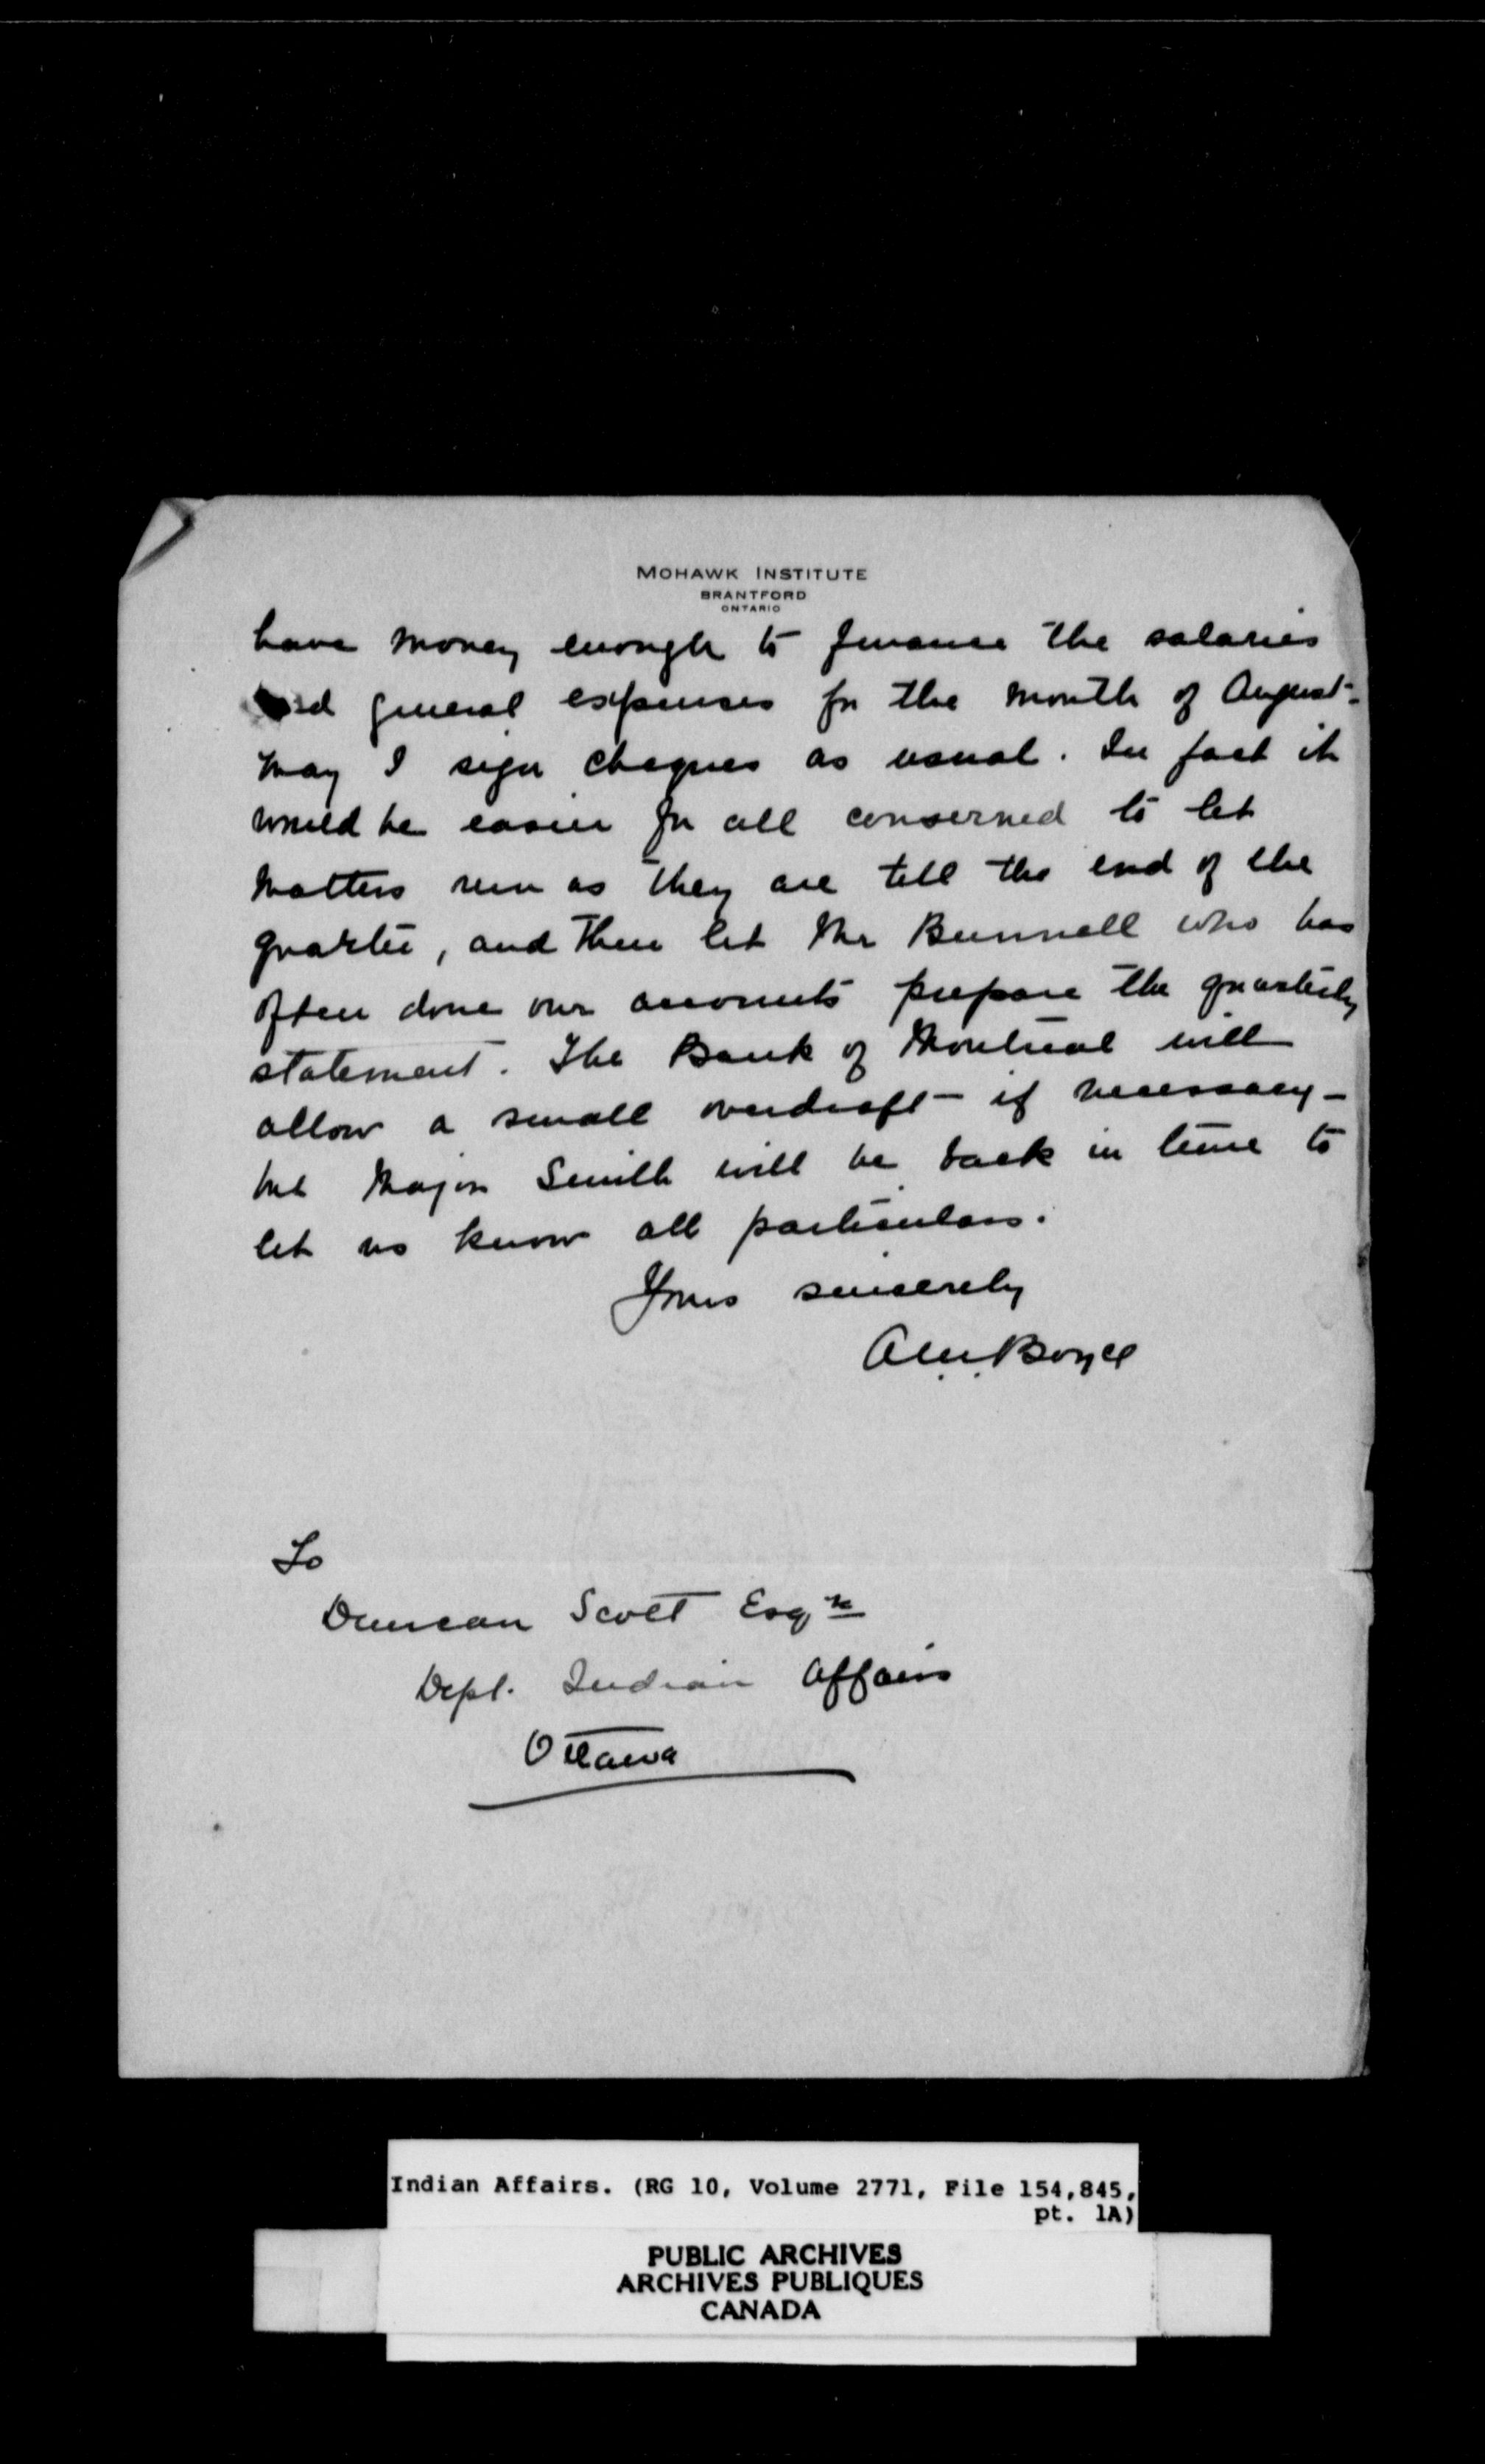 MOHAWK INSTITUTE
BRANTFORD
ONTARIO
have money enough to finance the salaries
and general expenses for the month of August -
may I sign cheques as usual. In fact it
would be easier for all conserned to let
matters run as they are till the end of the
quarter, and then let Mr Bunnell who has
often done our accounts prepare the quarterly
statement. The Bank of Montreal will
allow a small overdraft - if necessary -
but Major Smith will be back in time to
let us know all particulars.
Yours sincerely
A.M. Boyce
To
Duncan Scott Esqre
Dept. Indian Affairs
Ottawa
Indian Affairs. (RG 10, Volume 2771, File 154,845,
pt. 1A)
PUBLIC ARCHIVES
ARCHIVES PUBLIQUES
CANADA